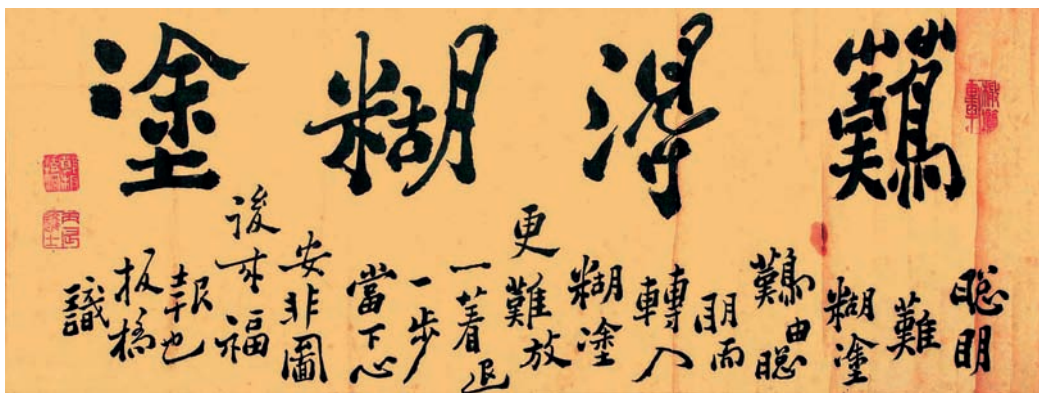 難得糊塗
聰明
難
糊塗
難由聰
明而
轉入
糊塗
更難放
一著退
一步
當下心
安非圖
後來福
報也
板橋
識